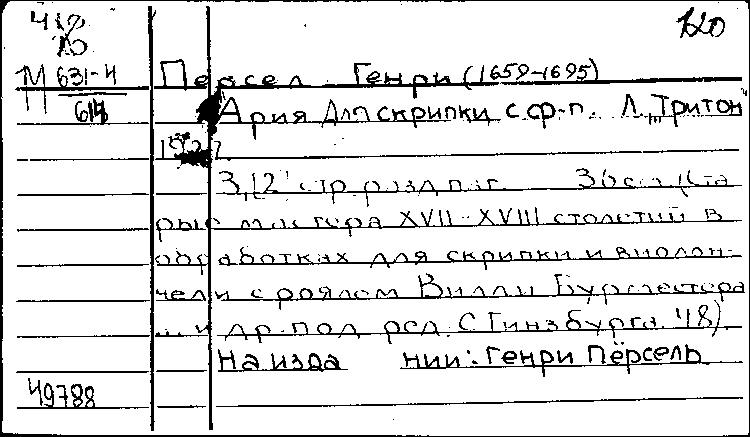 120
М 631-4
Персел Генри (1659-1695)
Ария для скрипки с ф-п. Л. „Тритон"
3,[2] стр. разд. паг. 36 см. (Ста
рые мастера XVII-XVIII столетий в
обработках для скрипки и виолон-
чели с роялем Вилли Бурместера
... и др. под ред. С. Гинзбурга. 48)
На изда нии: Генри Пёрсель
49788